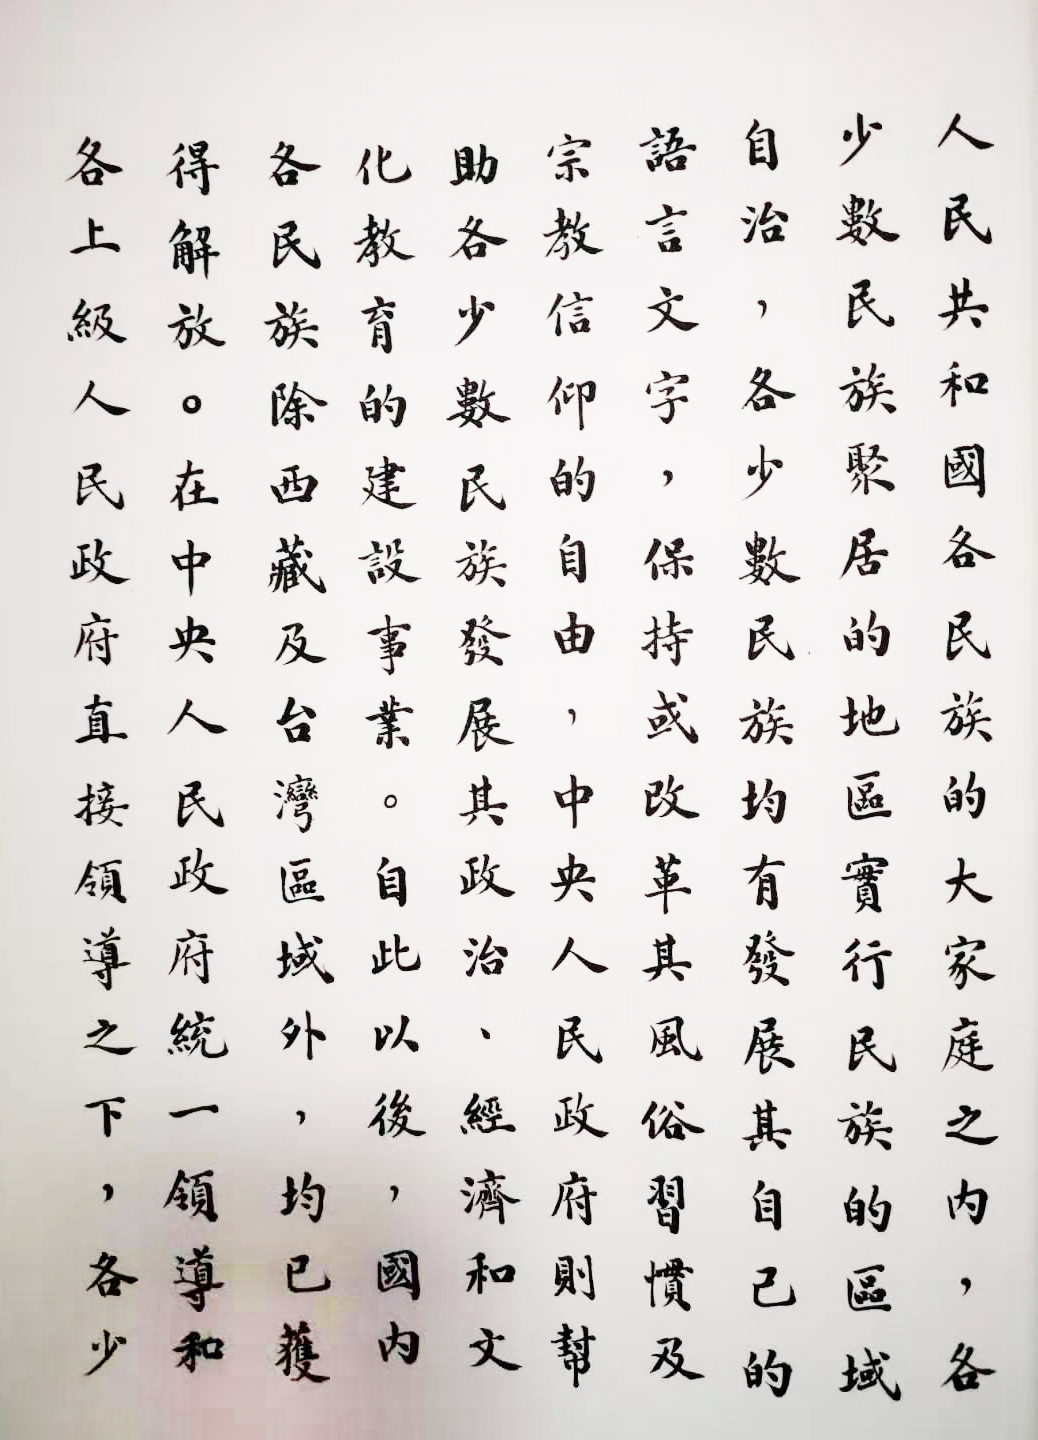 人民共和國各民族的大家庭之内，各
少數民族聚居的地區實行民族的區域
自治，各少數民族均有發展其自己的
語言文字，保持或改革其風俗習慣及
宗教信仰的自由，中央人民政府則幫
助各少數民族發展其政治、經濟和文
化教育的建設事業。自此以後，國内
各民族除西藏及台灣區域外，均已獲
得解放。在中央人民政府統一領導和
各上級人民政府直接領導之下，各少